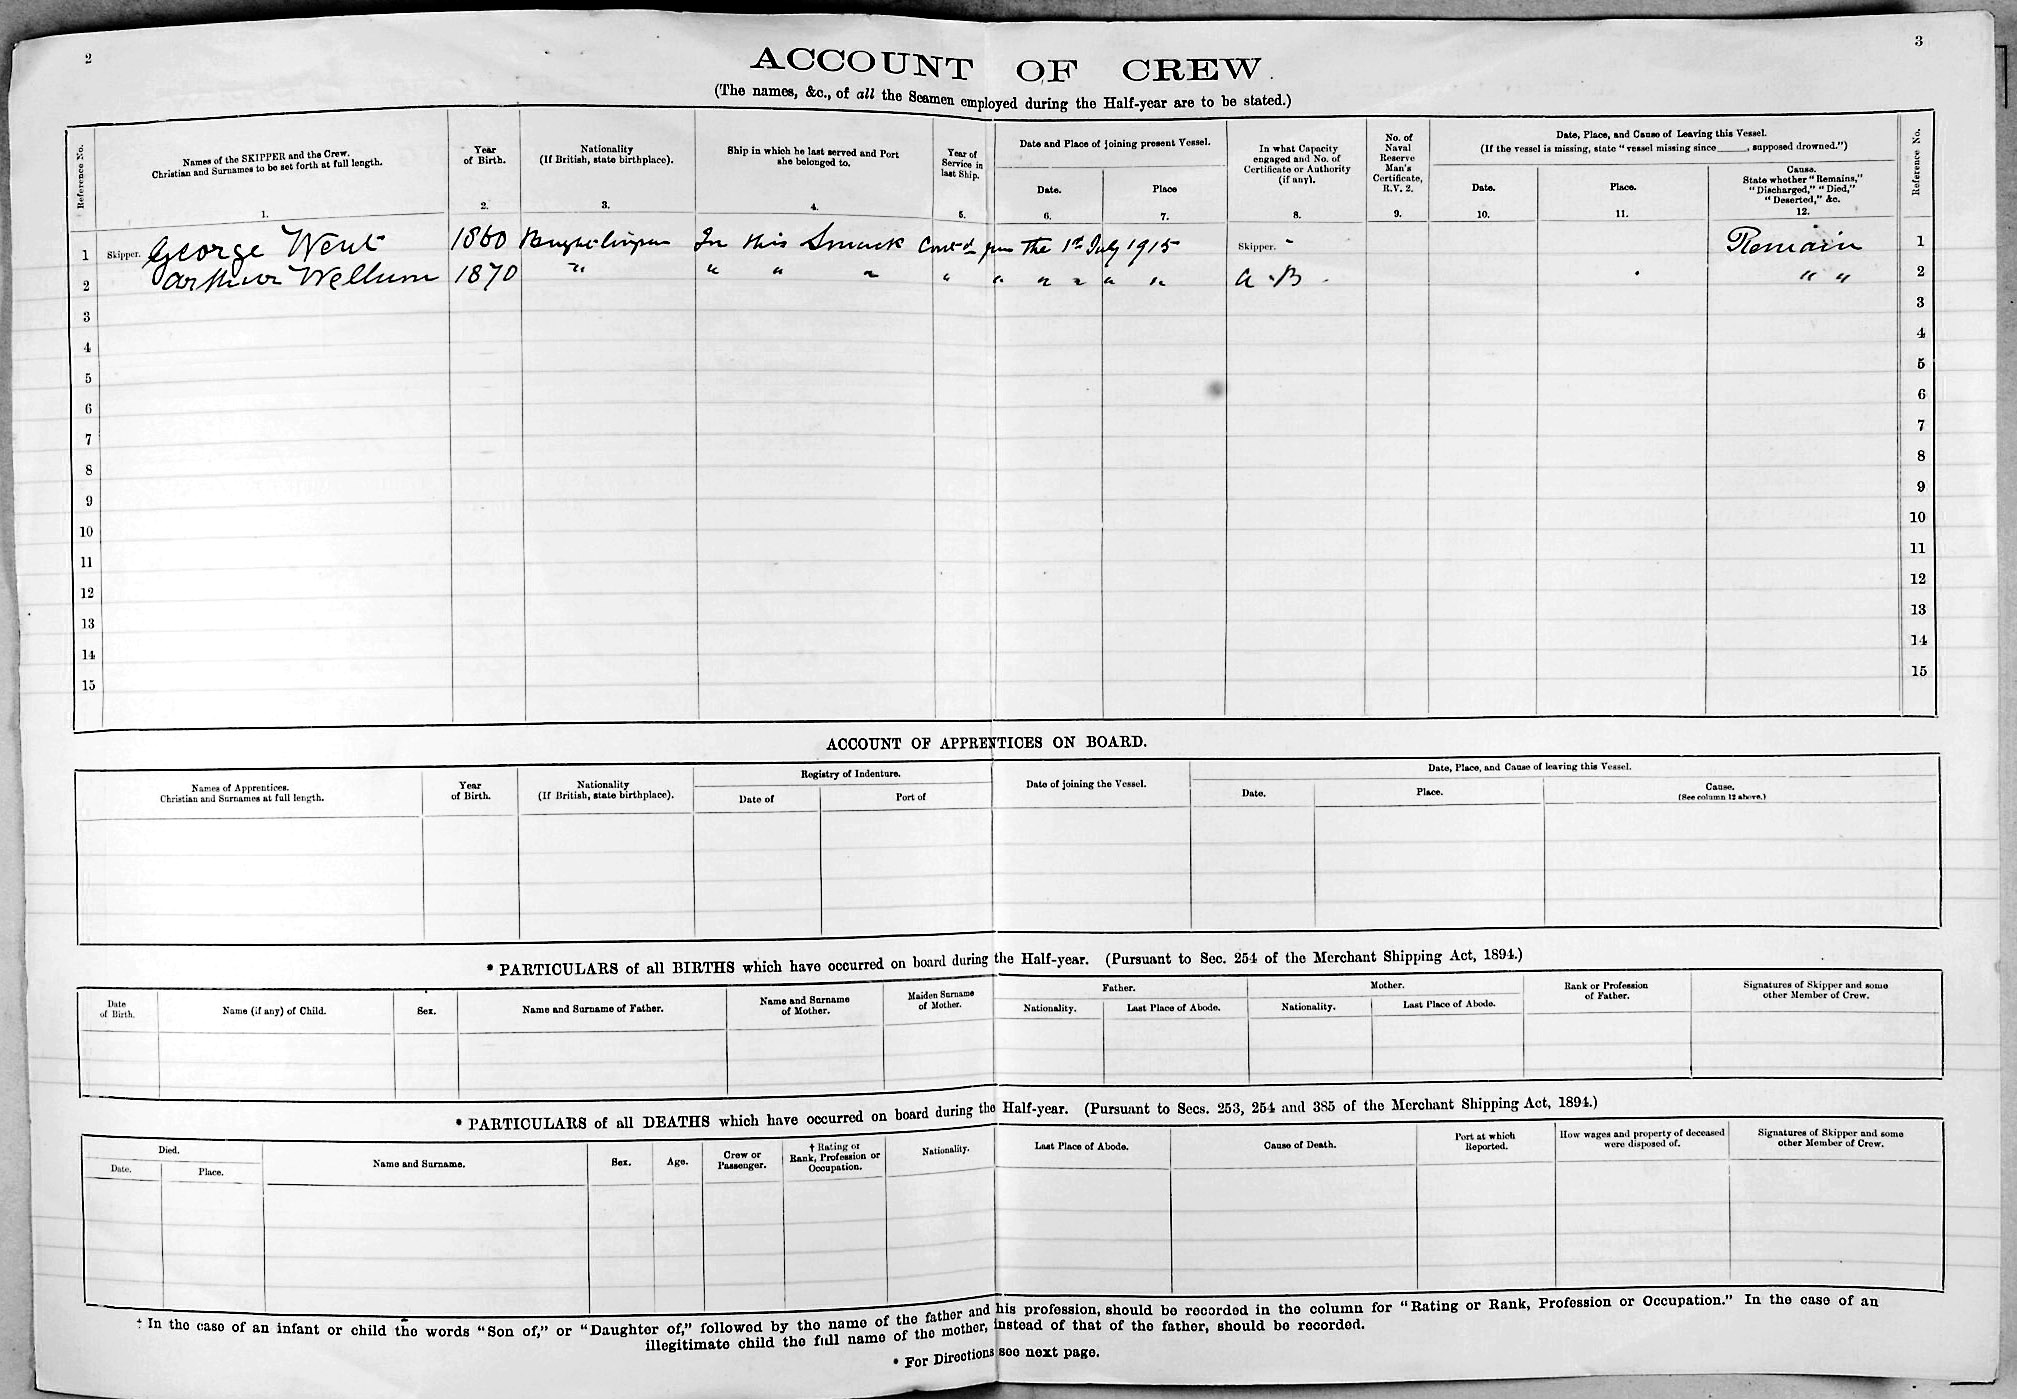 2
3
ACCOUNT OF CREW.
(The names, &c., of all the Seamen employed during the Half-year are to be stated.)
Reference No.
Names of the SKIPPER and the Crew.
Christian and Surnames to be set forth at full length.
1.
Year
of Birth.
2.
Nationality
(If British, state birthplace).
3.
Ship in which he last served and Port
she belonged to.
4.
Year of
Service in
last Ship.
5.
Date and Place of joining present Vessel.
Date.
6.
Place
7.
In what Capacity
engaged and No. of
Certificate or Authority
(if any).
8.
No. of
Naval
Reserve
Man's
Certificate,
R.V. 2.
9.
Date, Place, and Cause of Leaving this Vessel.
(If the vessel is missing, state "vessel missing since ____, supposed drowned.")
Date.
10.
Place.
11.
Cause.
State whether "Remains,"
"Discharged," "Died,"
"Deserted," &c.
12.
Reference No.
1 Skipper. George Went 1860 Brightlingsea In this Smack Cont'd from the 1st July 1915 Skipper. " Remain 1
2 Arthur Wellum 1870 " " " " " " " " " " A.B. " " 2
3 3
4 4
5 5
6 6
7 7
8 8
9 9
10 10
11 11
12 12
13 13
14 14
15 15
ACCOUNT OF APPRENTICES ON BOARD.
Names of Apprentices.
Christian and Surnames at full length.
Year
of Birth.
Nationality
(If British, state birthplace).
Registry of Indenture.
Date of
Port of
Date of joining the Vessel.
Date, Place, and Cause of leaving this Vessel.
Date.
Place.
Cause.
(See column 12 above.)
* PARTICULARS of all BIRTHS which have occurred on board during the Half-year. (Pursuant to Sec. 254 of the Merchant Shipping Act, 1894.)
Date
of Birth.
Name (if any) of Child.
Sex.
Name and Surname of Father.
Name and Surname
of Mother.
Maiden Surname
of Mother.
Father.
Nationality.
Last Place of Abode.
Mother.
Nationality.
Last Place of Abode.
Rank or Profession
of Father.
Signatures of Skipper and some
other Member of Crew.
* PARTICULARS of all DEATHS which have occurred on board during the Half-year. (Pursuant to Secs. 253, 254 and 385 of the Merchant Shipping Act, 1894.)
Died.
Date.
Place.
Name and Surname.
Sex.
Age.
Crew or
Passenger.
† Rating or
Rank, Profession or
Occupation.
Nationality.
Last Place of Abode.
Cause of Death.
Port at which
Reported.
How wages and property of deceased
were disposed of.
Signatures of Skipper and some
other Member of Crew.
† In the case of an infant or child the words "Son of," or "Daughter of," followed by the name of the father and his profession, should be recorded in the column for "Rating or Rank, Profession or Occupation." In the case of an
illegitimate child the full name of the mother, instead of that of the father, should be recorded.
* For Directions see next page.